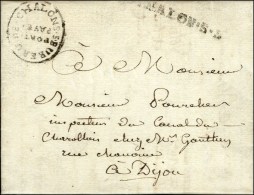 CHALON S S
PORT
PAYÉ
CHALON-S-S
À Monsieur
Monsieur Pourcher
inspecteur du Canal du
Charollais chez Mr Gauthey
rue
à Dijon